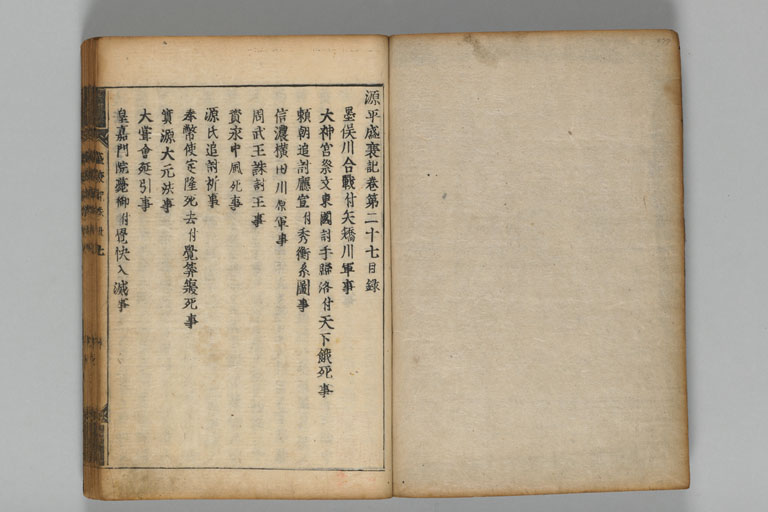 源平盛衰記巻第二十七目録
墨俣川合戰付矢矯川軍事
大神宮祭文東國討手歸洛付天下餓死事
頼朝追討廳宣付秀衡系圖事
信濃横田川原軍事
周武王誅紂王事
資永中風死事
源氏追討祈事
奉幣使定隆死去付覺算寝死事
實源大元法事
大嘗會延引事
皇嘉門院薨御付覺快入滅事